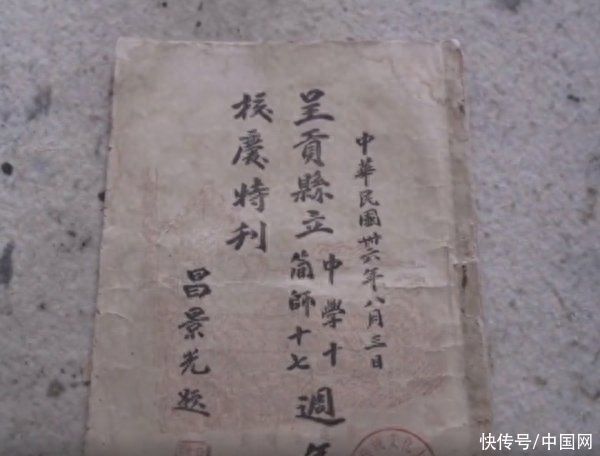 中華民國卅六年八月三日
呈貢縣立
中學十
简師十七
週年
校慶特刊
昌景光題
快传号/中国网